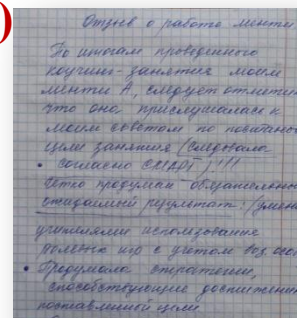 )
Отзыв о работе менти
По итогам проведенного
коучинг-занятия моей
менти А, следует отметит
что она прислушалась к
моим советам по постановке
цели занятия (следовала
• согласно СМАРТ)!!!
четко продуман
ожидаемый результат: (умен
учителями использования
ролевых игр с учетом воз. осо
• Продумала стратегии,
способствующие достижени
поставленной цели.